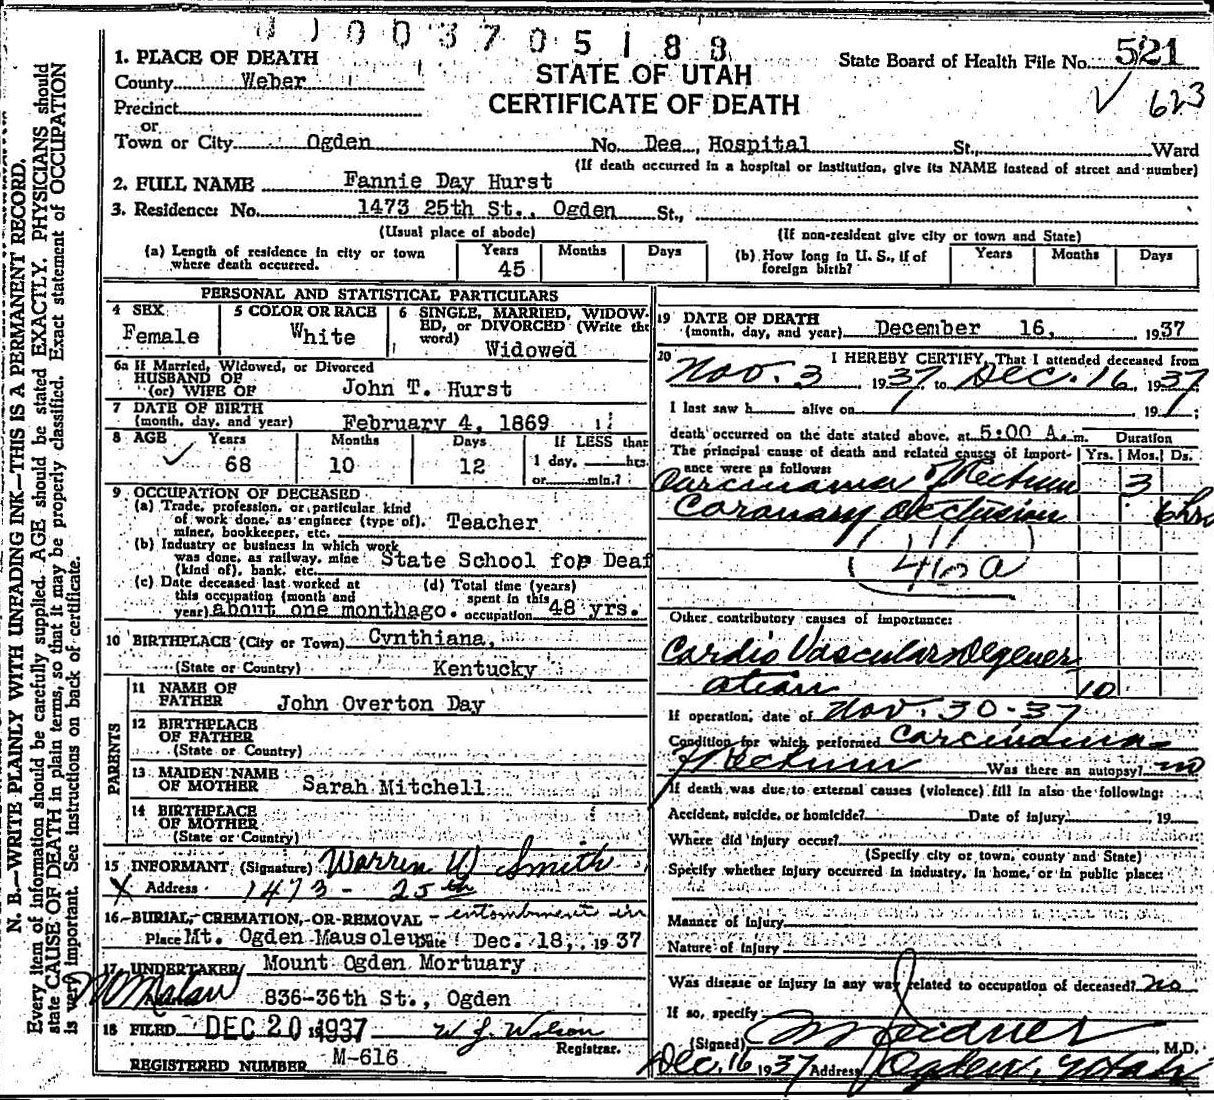 1003705188
1. PLACE OF DEATH
County Weber
STATE OF UTAH
CERTIFICATE OF DEATH
State Board of Health File No. 521
✓ 623
Precinct
or
Town or City Ogden No. Dee Hospital St., Ward
(If death occurred in a hospital or institution, give its NAME instead of street and number)
2. FULL NAME Fannie Day Hurst
3. Residence: No. 1473 25th St., Ogden St.,
(Usual place of abode) (If non-resident give city or town and State)
(a) Length of residence in city or town where death occurred. Years 45 Months Days
(b) How long in U. S., if of foreign birth? Years Months Days
PERSONAL AND STATISTICAL PARTICULARS
4 SEX Female
5 COLOR OR RACE White
6 SINGLE, MARRIED, WIDOWED, or DIVORCED (Write the word) Widowed
6a If Married, Widowed, or Divorced
HUSBAND OF
(or) WIFE OF John T. Hurst
7 DATE OF BIRTH
(month, day, and year) February 4, 1869
8 AGE Years Months Days If LESS than
✓ 68 10 12 1 day, hrs.
or min.?
9 OCCUPATION OF DECEASED
(a) Trade, profession, or particular kind
of work done, as engineer (type of), Teacher
miner, bookkeeper, etc.
(b) Industry or business in which work
was done, as railway, mine State School for Deaf
(kind of), bank, etc.
(c) Date deceased last worked at
this occupation (month and
year) about one month ago.
(d) Total time (years)
spent in this
occupation 48 yrs.
10 BIRTHPLACE (City or Town) Cynthiana,
(State or Country) Kentucky
PARENTS
11 NAME OF
FATHER John Overton Day
12 BIRTHPLACE
OF FATHER
(State or Country)
13 MAIDEN NAME
OF MOTHER Sarah Mitchell
14 BIRTHPLACE
OF MOTHER
(State or Country)
15 INFORMANT (Signature) Warren W Smith
X Address 1473 - 25th
16 BURIAL, CREMATION, OR REMOVAL - entombment in
Place Mt. Ogden Mausoleum Date Dec. 18, 1937
17 UNDERTAKER Mount Ogden Mortuary
836-36th St., Ogden
18 FILED DEC 20 1937 W J Wilson
Registrar.
REGISTERED NUMBER M-616
19 DATE OF DEATH
(month, day, and year) December 16, 1937
20 I HEREBY CERTIFY, That I attended deceased from
Nov. 3, 1937 to Dec. 16, 1937
I last saw h alive on , 19 ;
death occurred on the date stated above, at 5:00 A. m.
Duration
The principal cause of death and related causes of importance were as follows: Yrs. Mos. Ds.
Carcinoma of Rectum 3
Coronary occlusion 6 hrs
Other contributory causes of importance:
Cardio Vascular Degener
ation 10
If operation, date of Nov. 30-37
Condition for which performed Carcinoma
of Rectum Was there an autopsy? no
If death was due to external causes (violence) fill in also the following:
Accident, suicide, or homicide? Date of injury , 19
Where did injury occur?
(Specify city or town, county and State)
Specify whether injury occurred in industry, in home, or in public place:
Manner of Injury
Nature of Injury
Was disease or injury in any way related to occupation of deceased? no
If so, specify
(Signed) , M.D.
Dec. 16 1937 Address Ogden, Utah
N. B.—WRITE PLAINLY WITH UNFADING INK—THIS IS A PERMANENT RECORD.
Every item of information should be carefully supplied. AGE should be stated EXACTLY. PHYSICIANS should
state CAUSE OF DEATH in plain terms, so that it may be properly classified. Exact statement of OCCUPATION
is very important. See instructions on back of certificate.